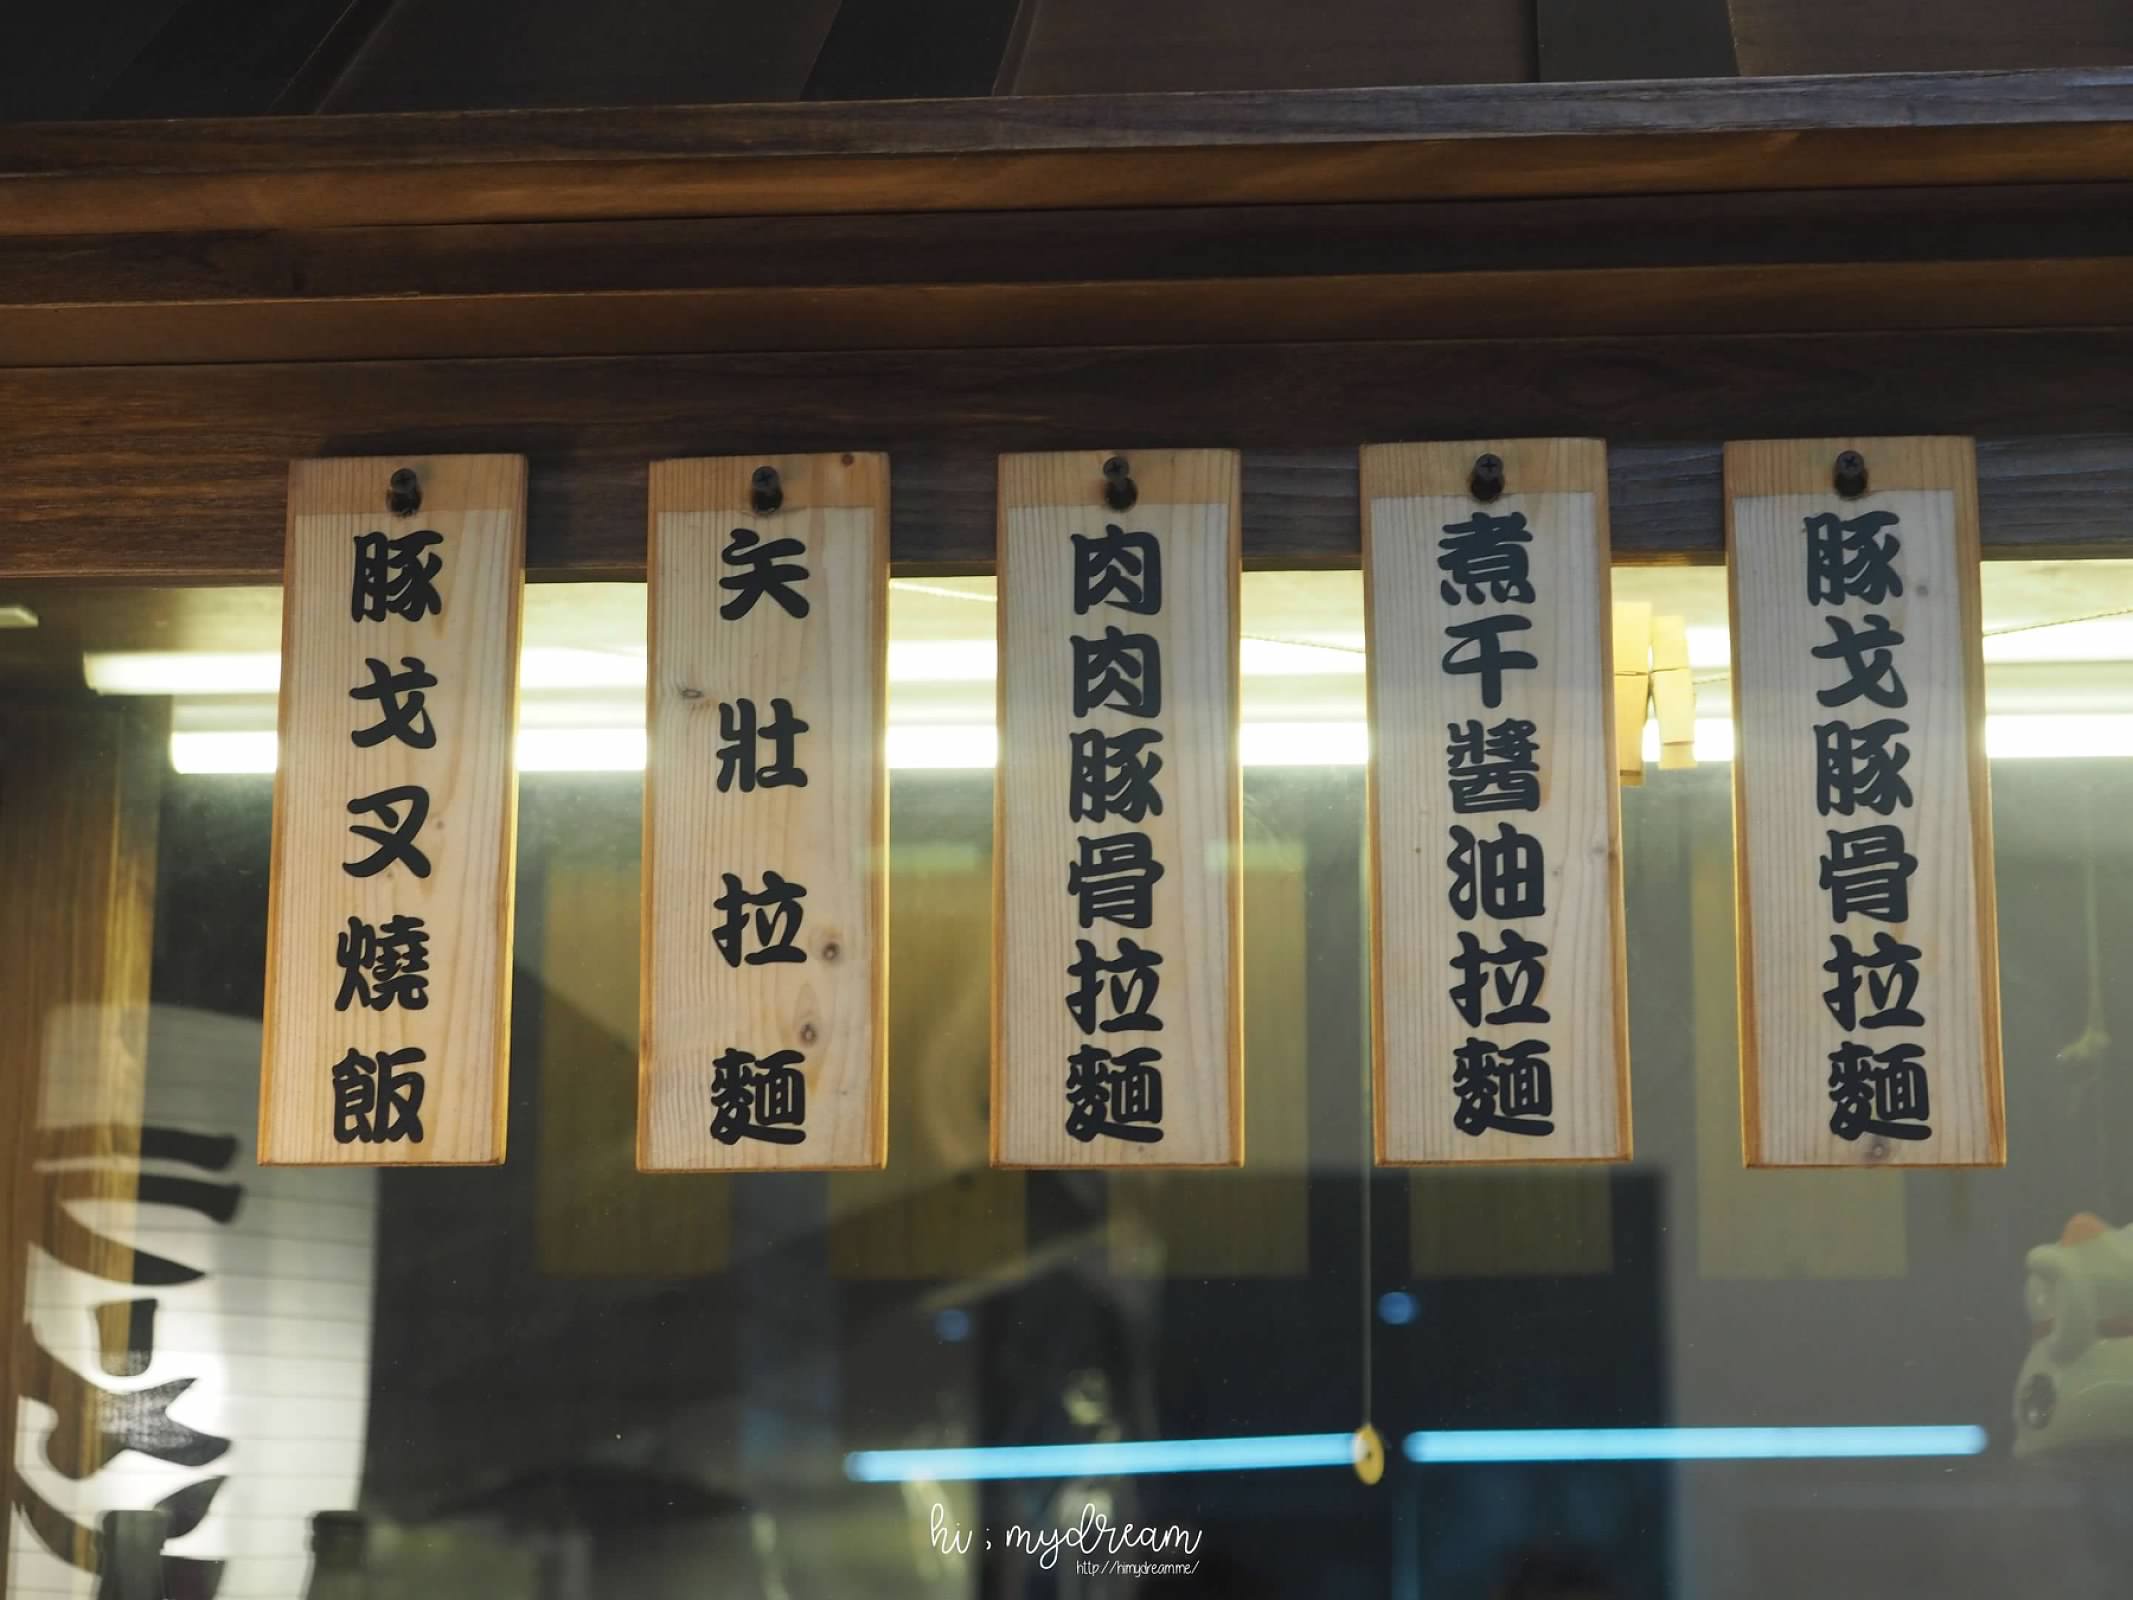 豚戈叉燒飯
矢壯拉麵
肉肉豚骨拉麵
煮干醬油拉麵
豚戈豚骨拉麵
hi ; mydream
http://himydream.me/